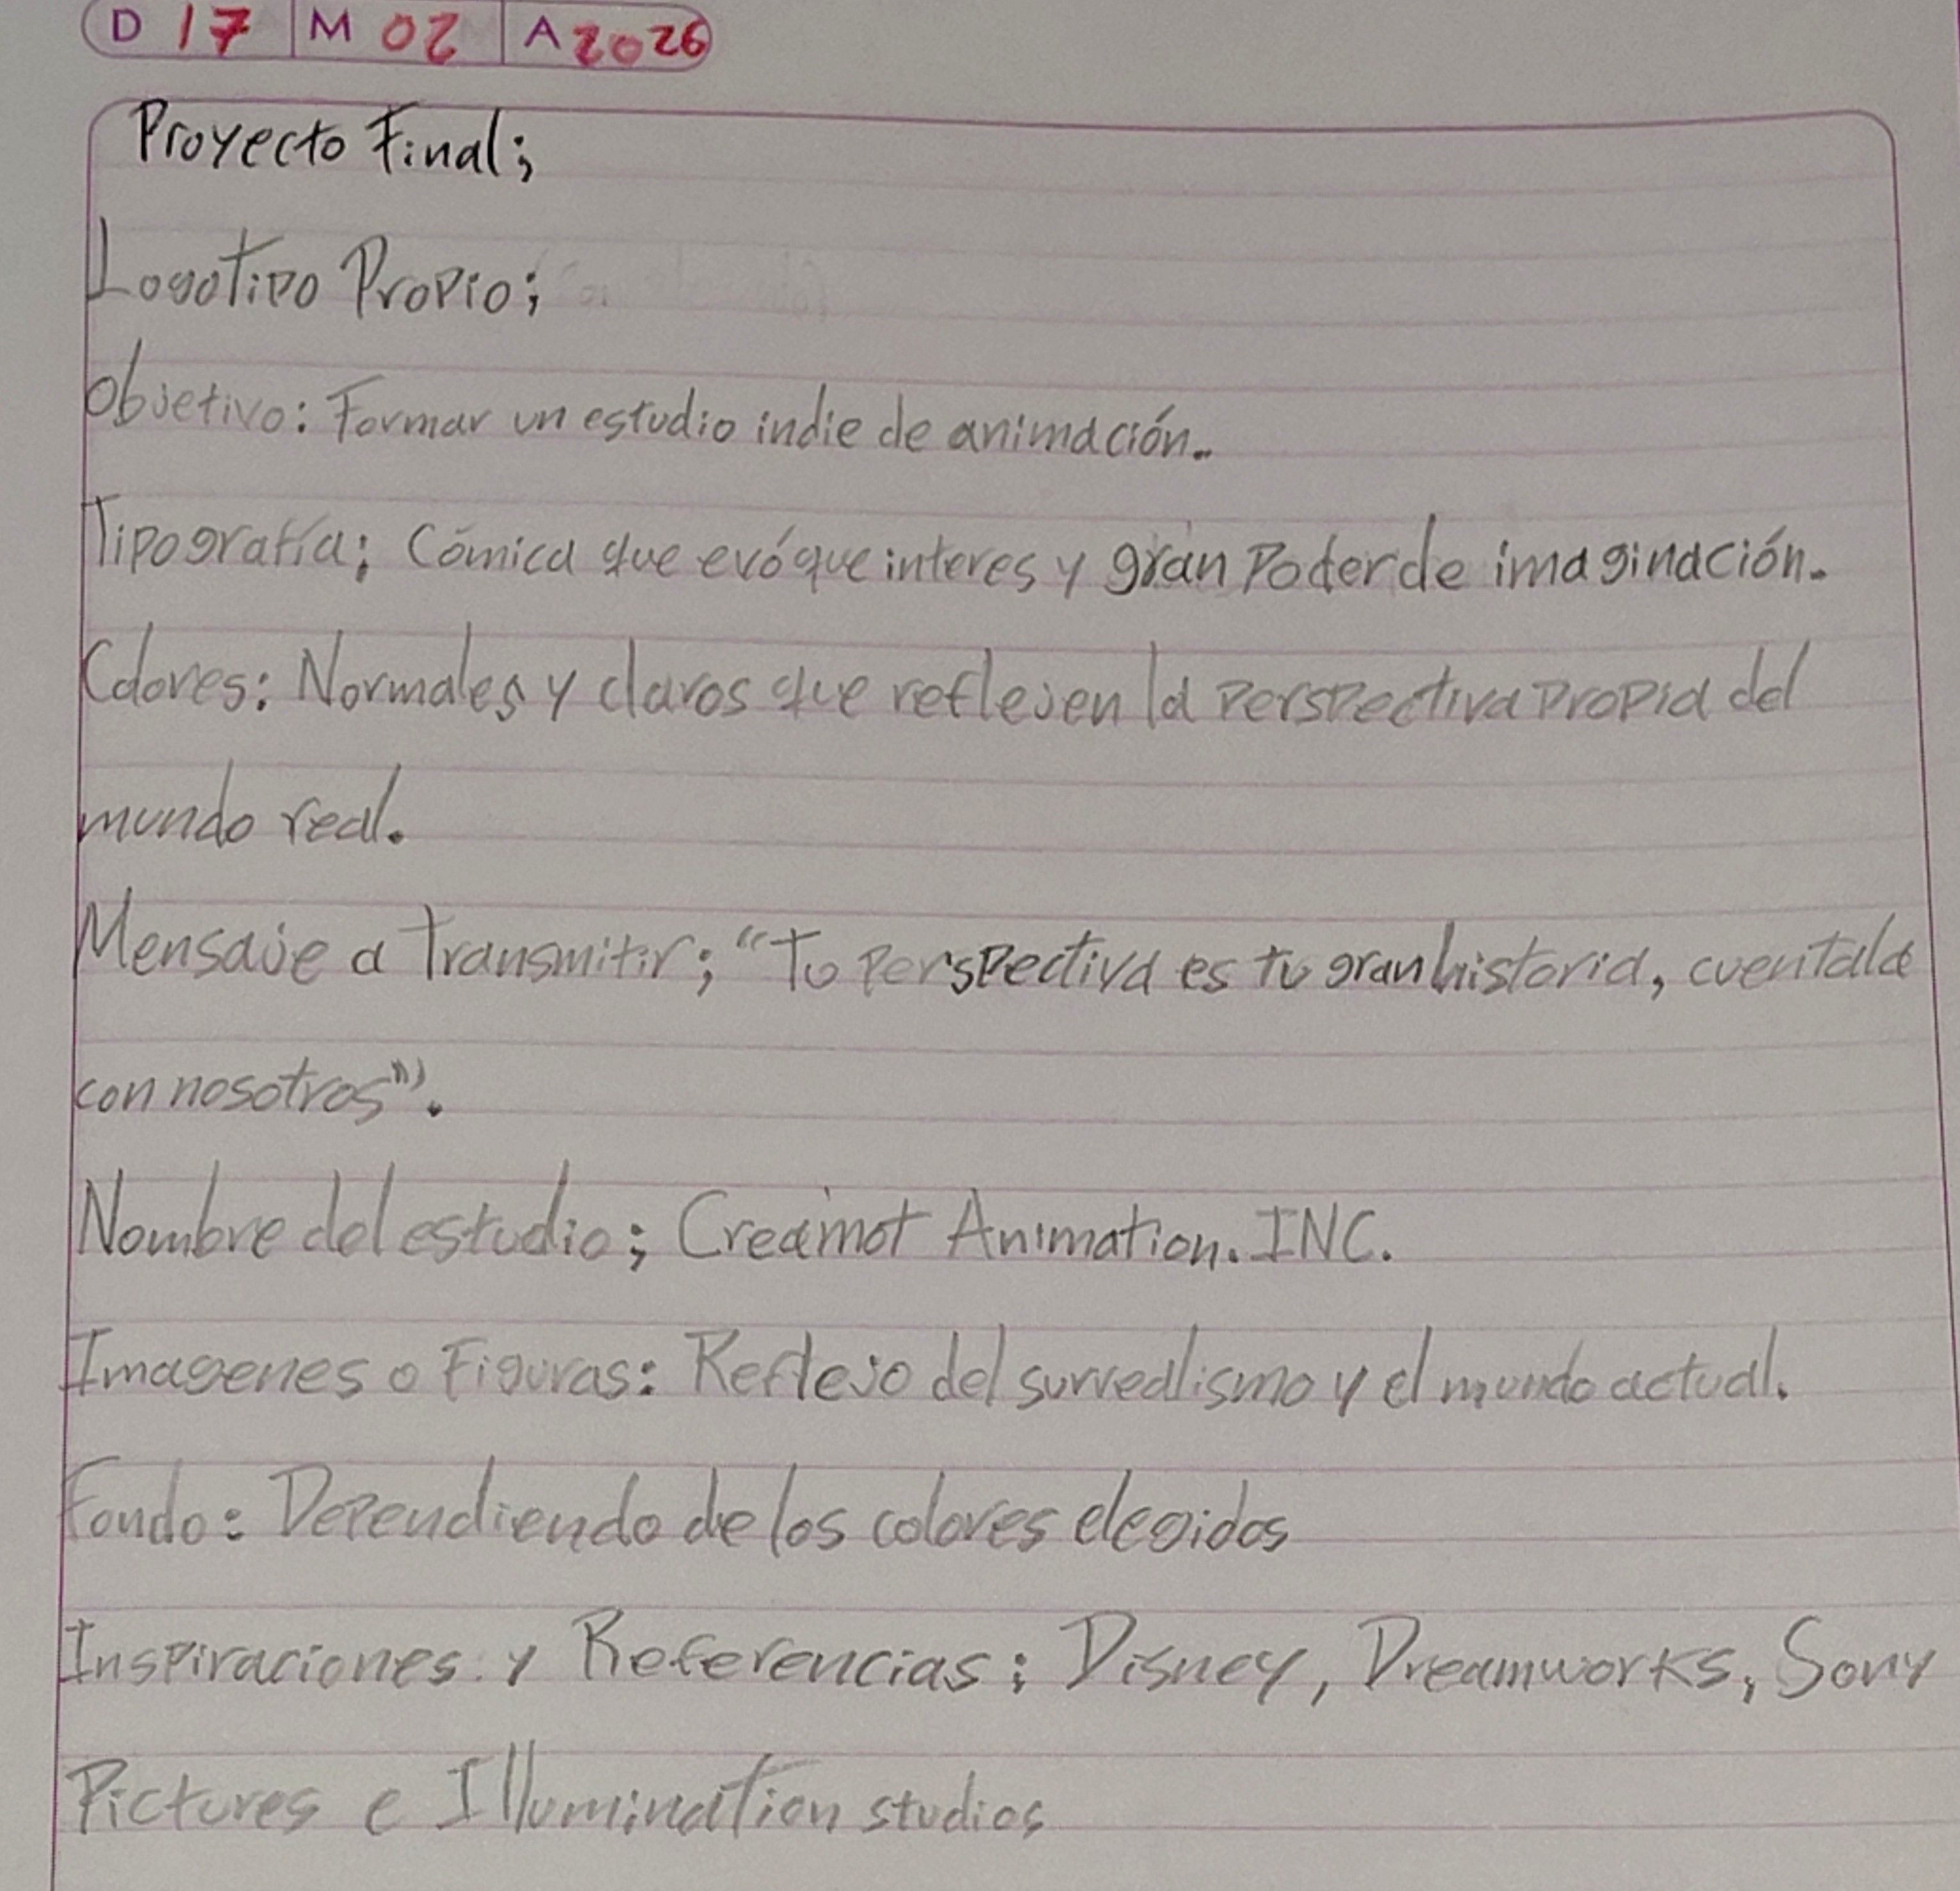 D 17 M 02 A 2026
Proyecto Final;
Logotipo Propio;
Objetivo: Formar un estudio indie de animación.
Tipografía; Cómica que evóque interes y gran Poder de imaginación.
Colores: Normales y claros que reflejen la Perspectiva Propia del
mundo real.
Mensaje a Transmitir; "Tu Perspectiva es tu gran historia, cuentala
con nosotros".
Nombre del estudio; Creamot Animation. INC.
Imagenes o Figuras: Reflejo del surrealismo y el mundo actual.
Fondo: Dependiendo de los colores elegidos
Inspiraciones y Referencias; Disney, Dreamworks, Sony
Pictures e Illumination studios